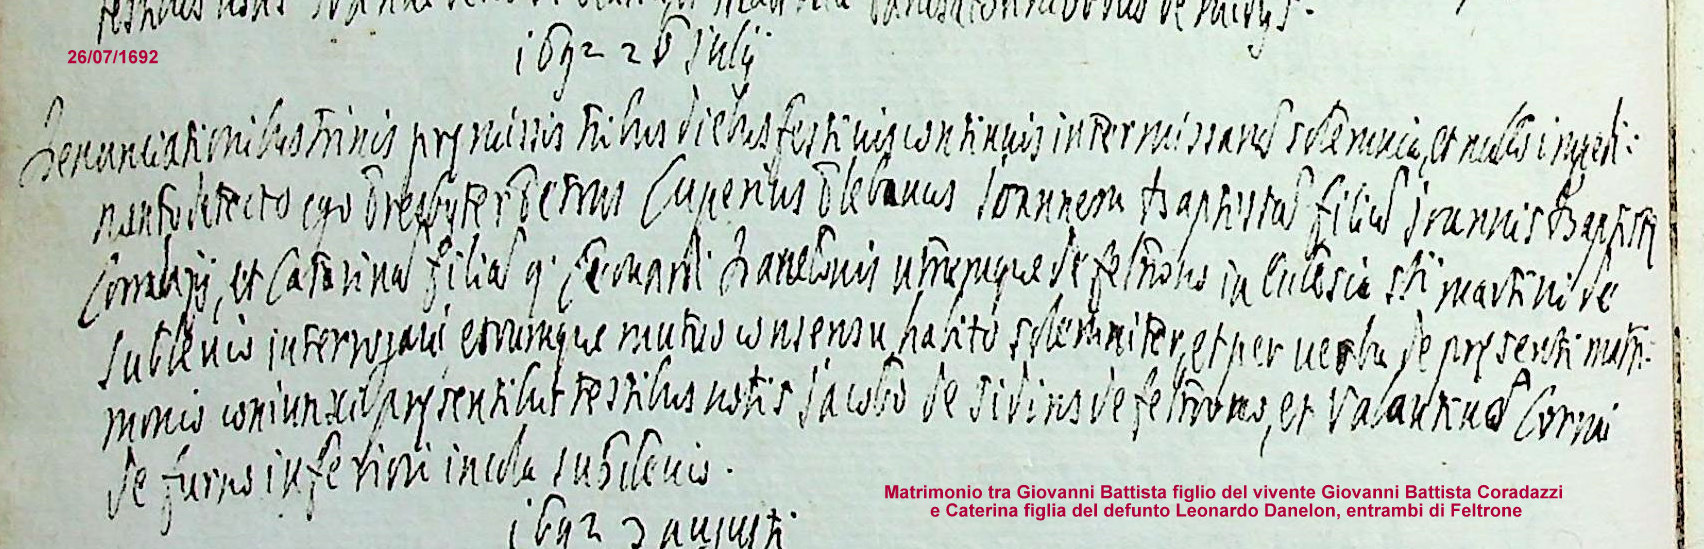 testibus notis
26/07/1692
1692 26 Julij
Denunciationibus trinis premissis tribus diebus festivis continuis inter missarum solemnia, et nullo impedi:
mento detecto ego Presbyter Petrus Cuperius Plebanus Ioannem Baptistam filium Ioannis Baptistę
Corradazij, et Catarinam filiam q. Leonardi Danelonis utrumque de feltrono in Ecclesia Sti Martini de
Subclevio interrogavi eorumque mutuo consensu habito solemniter, et per verba de pręsenti matri:
monio coniunxi pręsentibus testibus notis Jacobo de de feltrono, et Valantino Corui
de furno inferiori incola Subclevio.
1692 3 augusti
Matrimonio tra Giovanni Battista figlio del vivente Giovanni Battista Coradazzi
e Caterina figlia del defunto Leonardo Danelon, entrambi di Feltrone